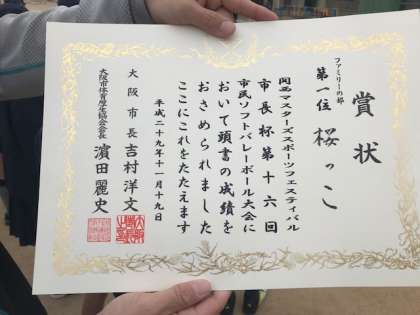 賞状
ファミリーの部
第一位 桜っこ
関西マスターズスポーツフェスティバル
市長杯第十六回
市民ソフトバレーボール大会に
おいて頭書の成績を
おさめられました
ここにこれをたたえます
平成二十九年十一月十九日
大阪市長 吉村洋文
大阪市体育厚生協会会長 濵田麗史